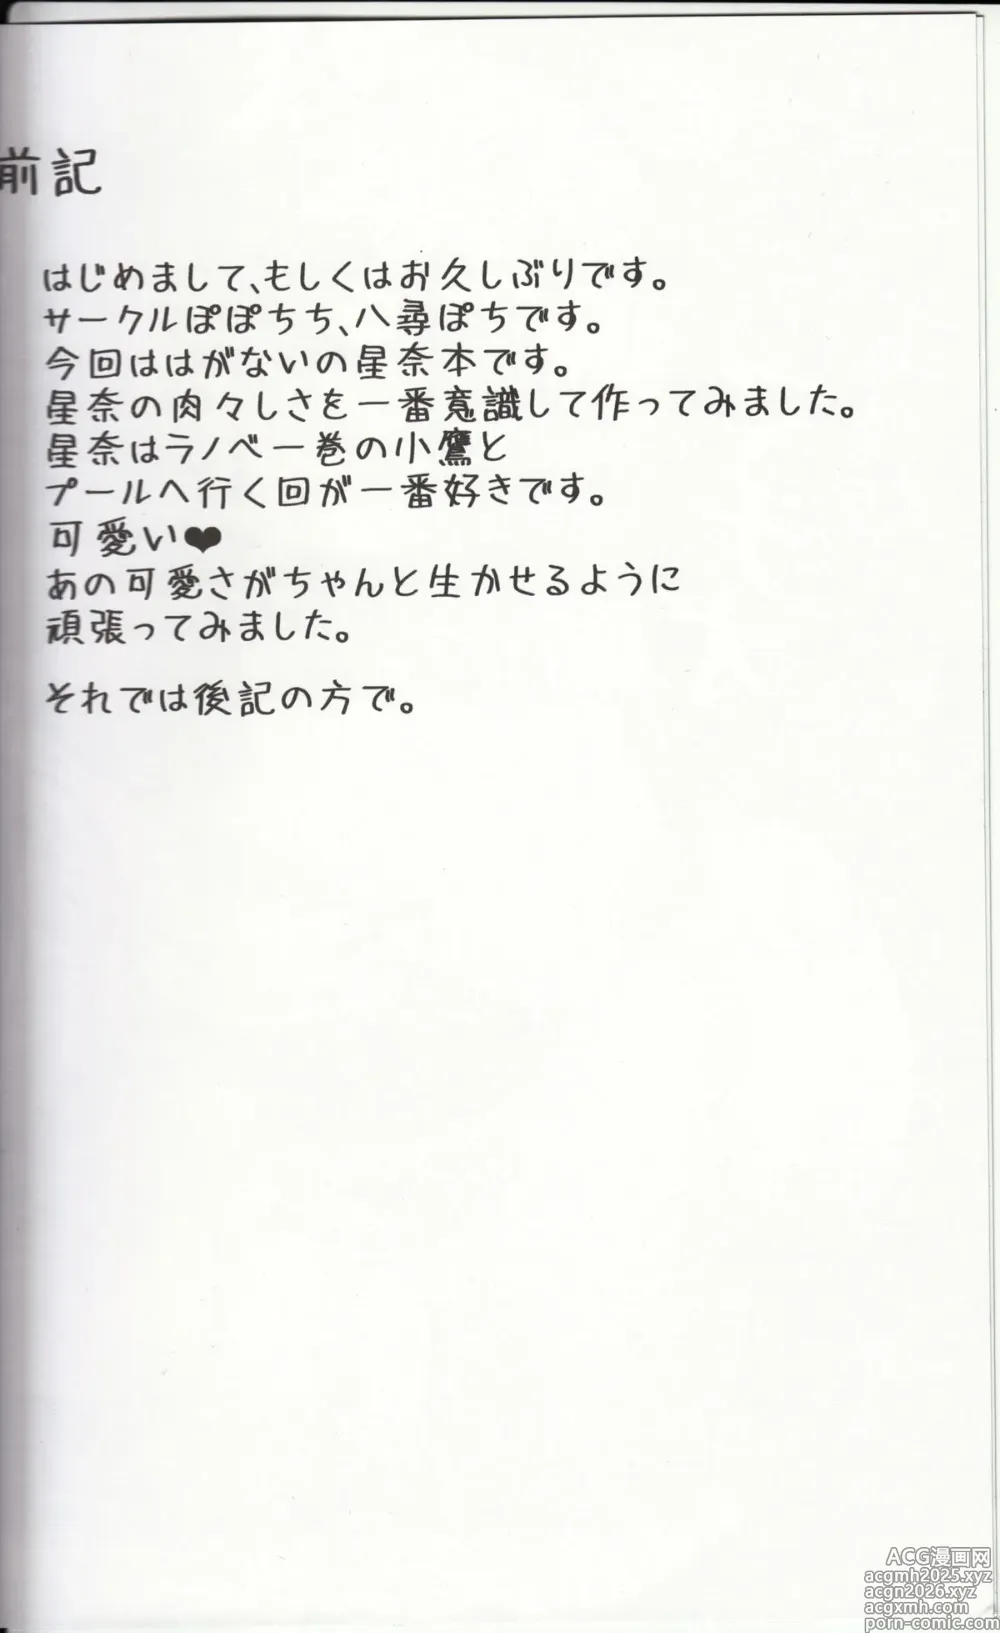 前記
はじめまして、もしくはお久しぶりです。
サークルぽぽちち、八尋ぽちです。
今回ははがないの星奈本です。
星奈の肉々しさを一番意識して作ってみました。
星奈はラノベ一巻の小鷹と
プールへ行く回が一番好きです。
可愛い❤
あの可愛さがちゃんと生かせるように
頑張ってみました。
それでは後記の方で。
ACG漫画网
acgmh2025.xyz
acgn2026.xyz
acgxmh.com
porn-comic.com